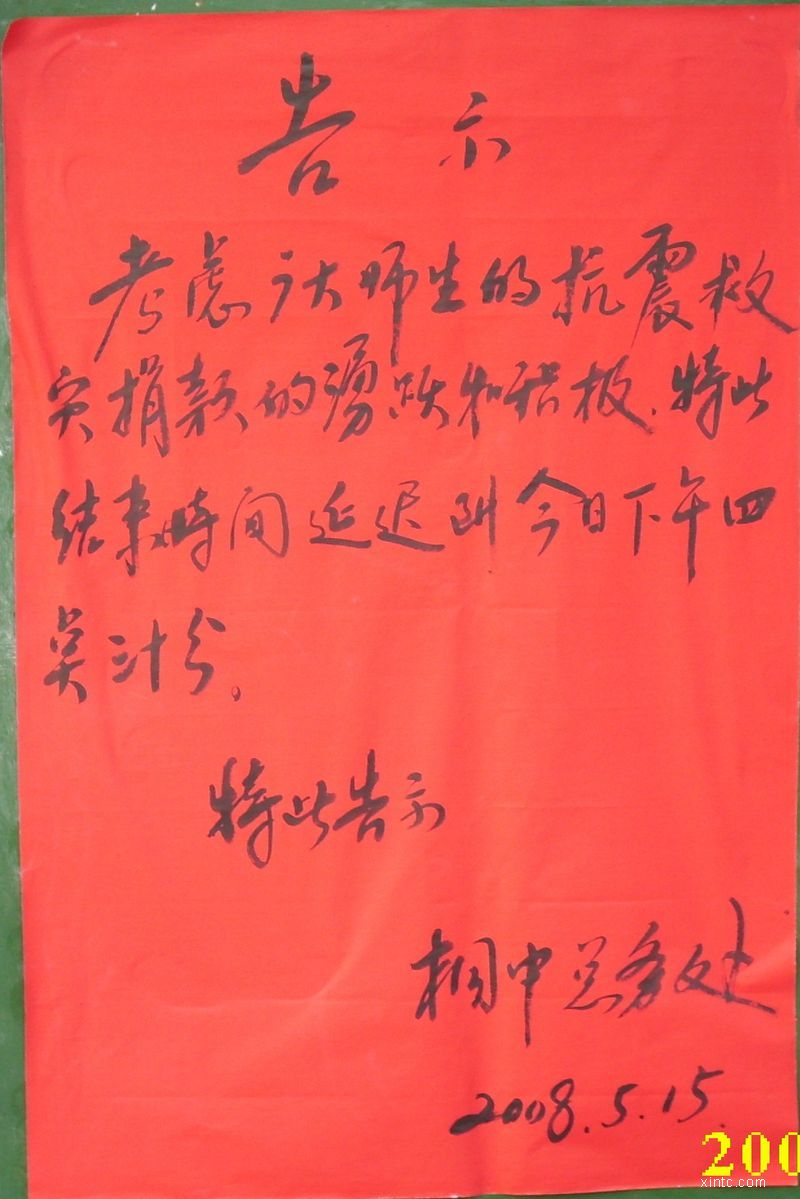 告示
考虑广大师生的抗震救
灾捐款的湧跃和积极、特此
结束时间延迟到今日下午四
点三十分。
特此告示
桐中总务处
2008.5.15.
200
xintc.com